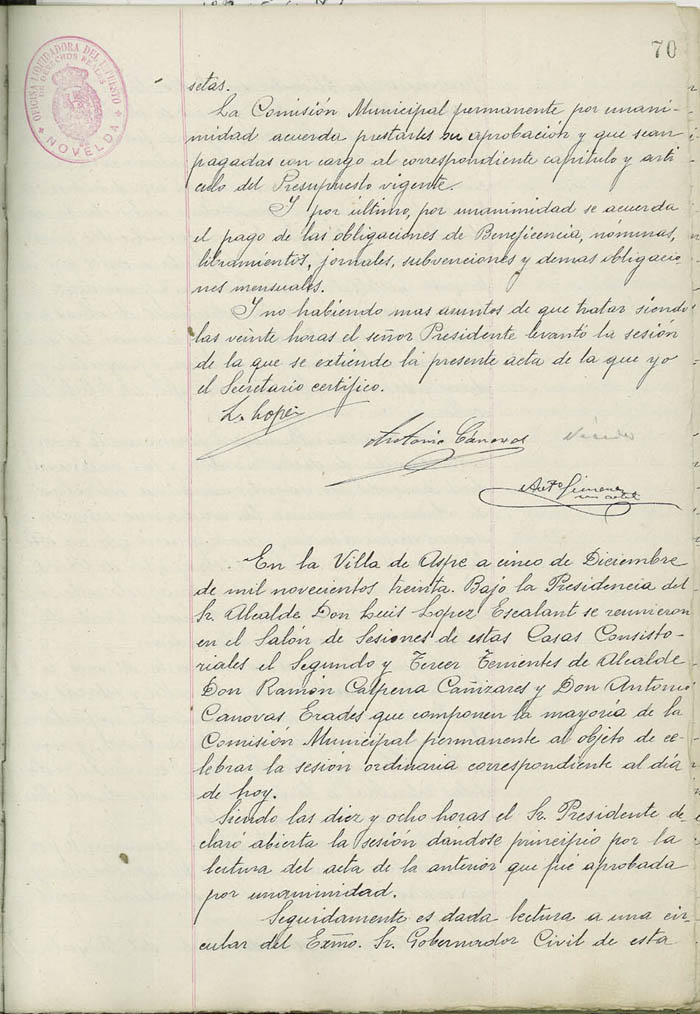 70
OFICINA LIQUIDADORA DEL IMPUESTO
DE DERECHOS REALES
NOVELDA
setas.
La Comisión Municipal permanente por unani-
midad acuerda prestarles su aprobación y que sean
pagadas con cargo al correspondiente capitulo y arti
culo del Presupuesto vigente.
Y por último, por unanimidad se acuerda
el pago de las obligaciones de Beneficencia, nóminas,
libramientos, jornales, subvenciones y demas obligacio-
nes mensuales.
Y no habiendo mas asuntos de que tratar siendo
las veinte horas el señor Presidente levantó la sesión
de la que se extiende la presente acta de la que yo
el Secretario certifico.
L. Lopez
Antonio Cánovas
Antº Gimenez
En la Villa de Aspe a cinco de Diciembre
de mil novecientos treinta. Bajo la Presidencia del
Sr. Alcalde Don Luis Lopez Escalant se reunieron
en el Salón de Sesiones de estas Casas Consisto-
riales el Segundo y Tercer Tenientes de Alcalde
Don Ramón Calpena Cañizares y Don Antonio
Canovas Erades que componen la mayoría de la
Comisión Municipal permanente al objeto de ce-
lebrar la sesión ordinaria correspondiente al día
de hoy.
Siendo las diez y ocho horas el Sr. Presidente de
claró abierta la sesión dándose principio por la
lectura del acta de la anterior que fué aprobada
por unanimidad.
Seguidamente es dada lectura a una cir-
cular del Exmo. Sr. Gobernador Civil de esta